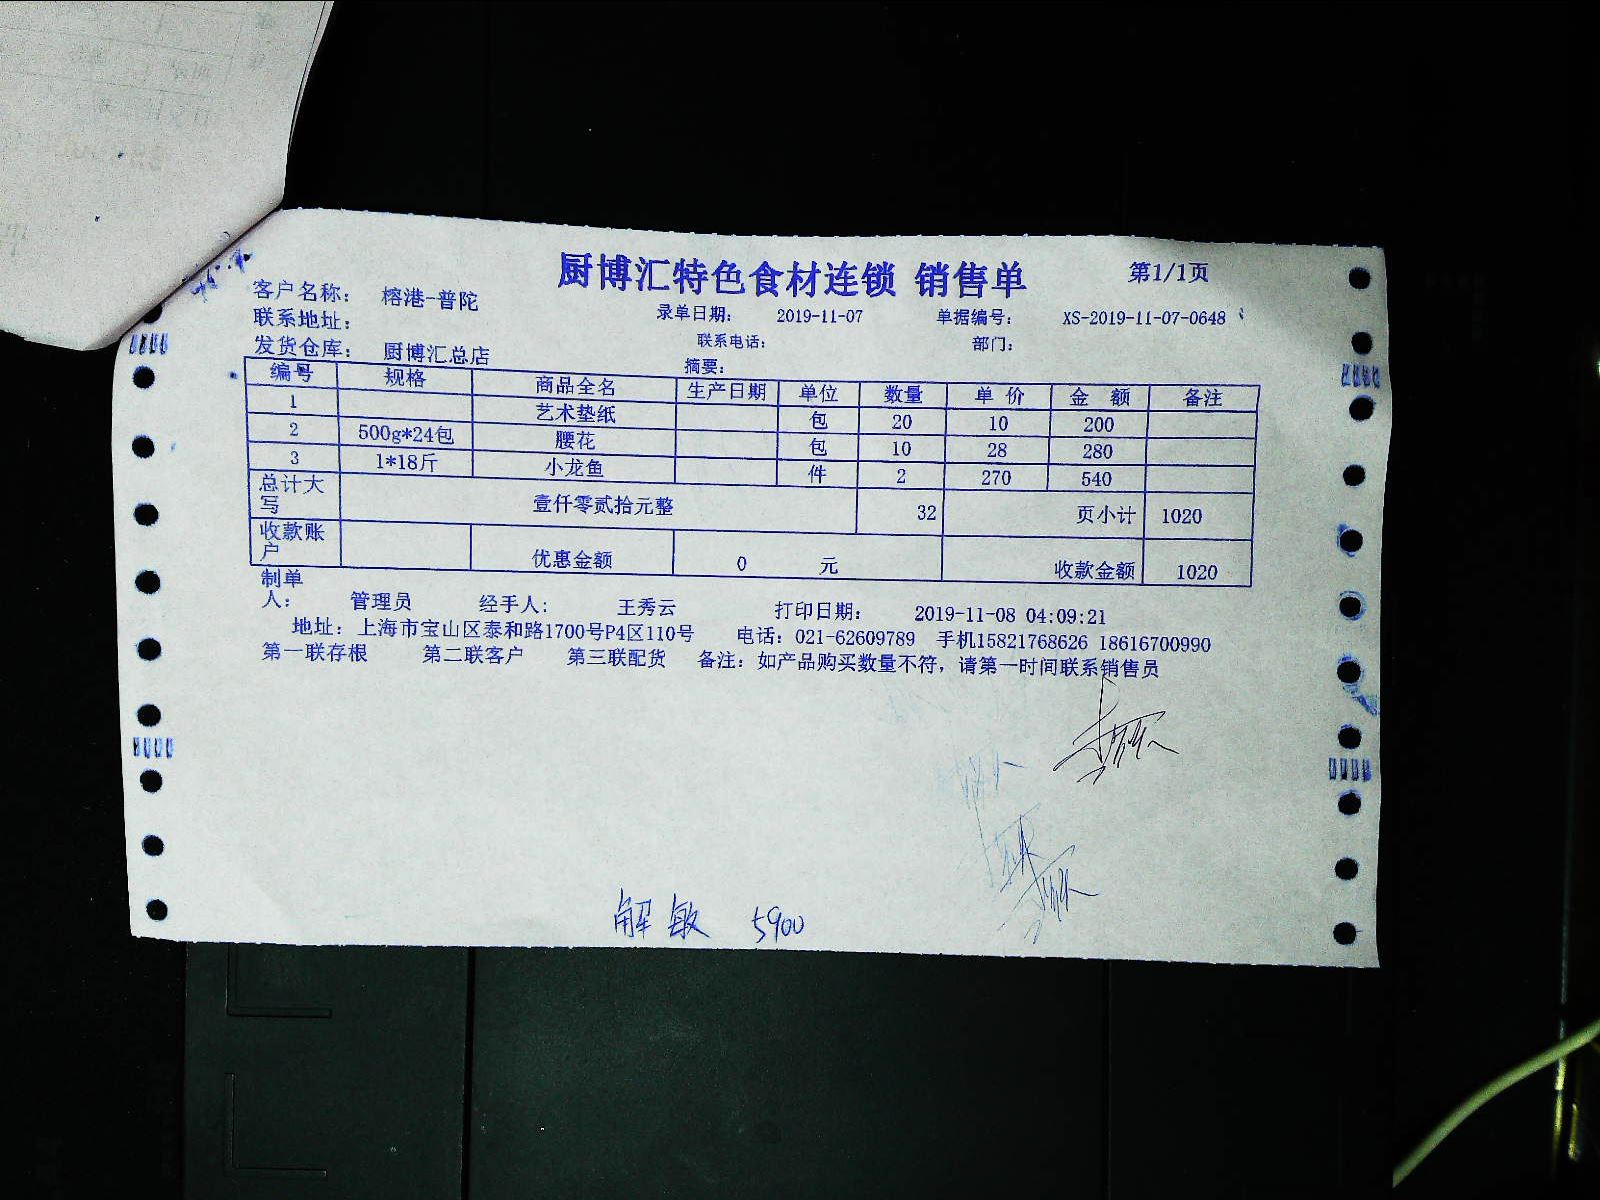 厨博汇特色食材连锁 销售单 第1/1页
客户名称： 榕港-普陀 录单日期： 2019-11-07 单据编号： XS-2019-11-07-0648
联系地址： 联系电话： 部门：
发货仓库： 厨博汇总店 摘要：
编号 规格 商品全名 生产日期 单位 数量 单 价 金 额 备注
1 艺术垫纸 包 20 10 200
2 500g*24包 腰花 包 10 28 280
3 1*18斤 小龙鱼 件 2 270 540
总计大写 壹仟零贰拾元整 32 页小计 1020
收款账户 优惠金额 0 元 收款金额 1020
制单人： 管理员 经手人： 王秀云 打印日期： 2019-11-08 04:09:21
地址：上海市宝山区泰和路1700号P4区110号 电话：021-62609789 手机15821768626 18616700990
第一联存根 第二联客户 第三联配货 备注：如产品购买数量不符，请第一时间联系销售员
解敏 5900